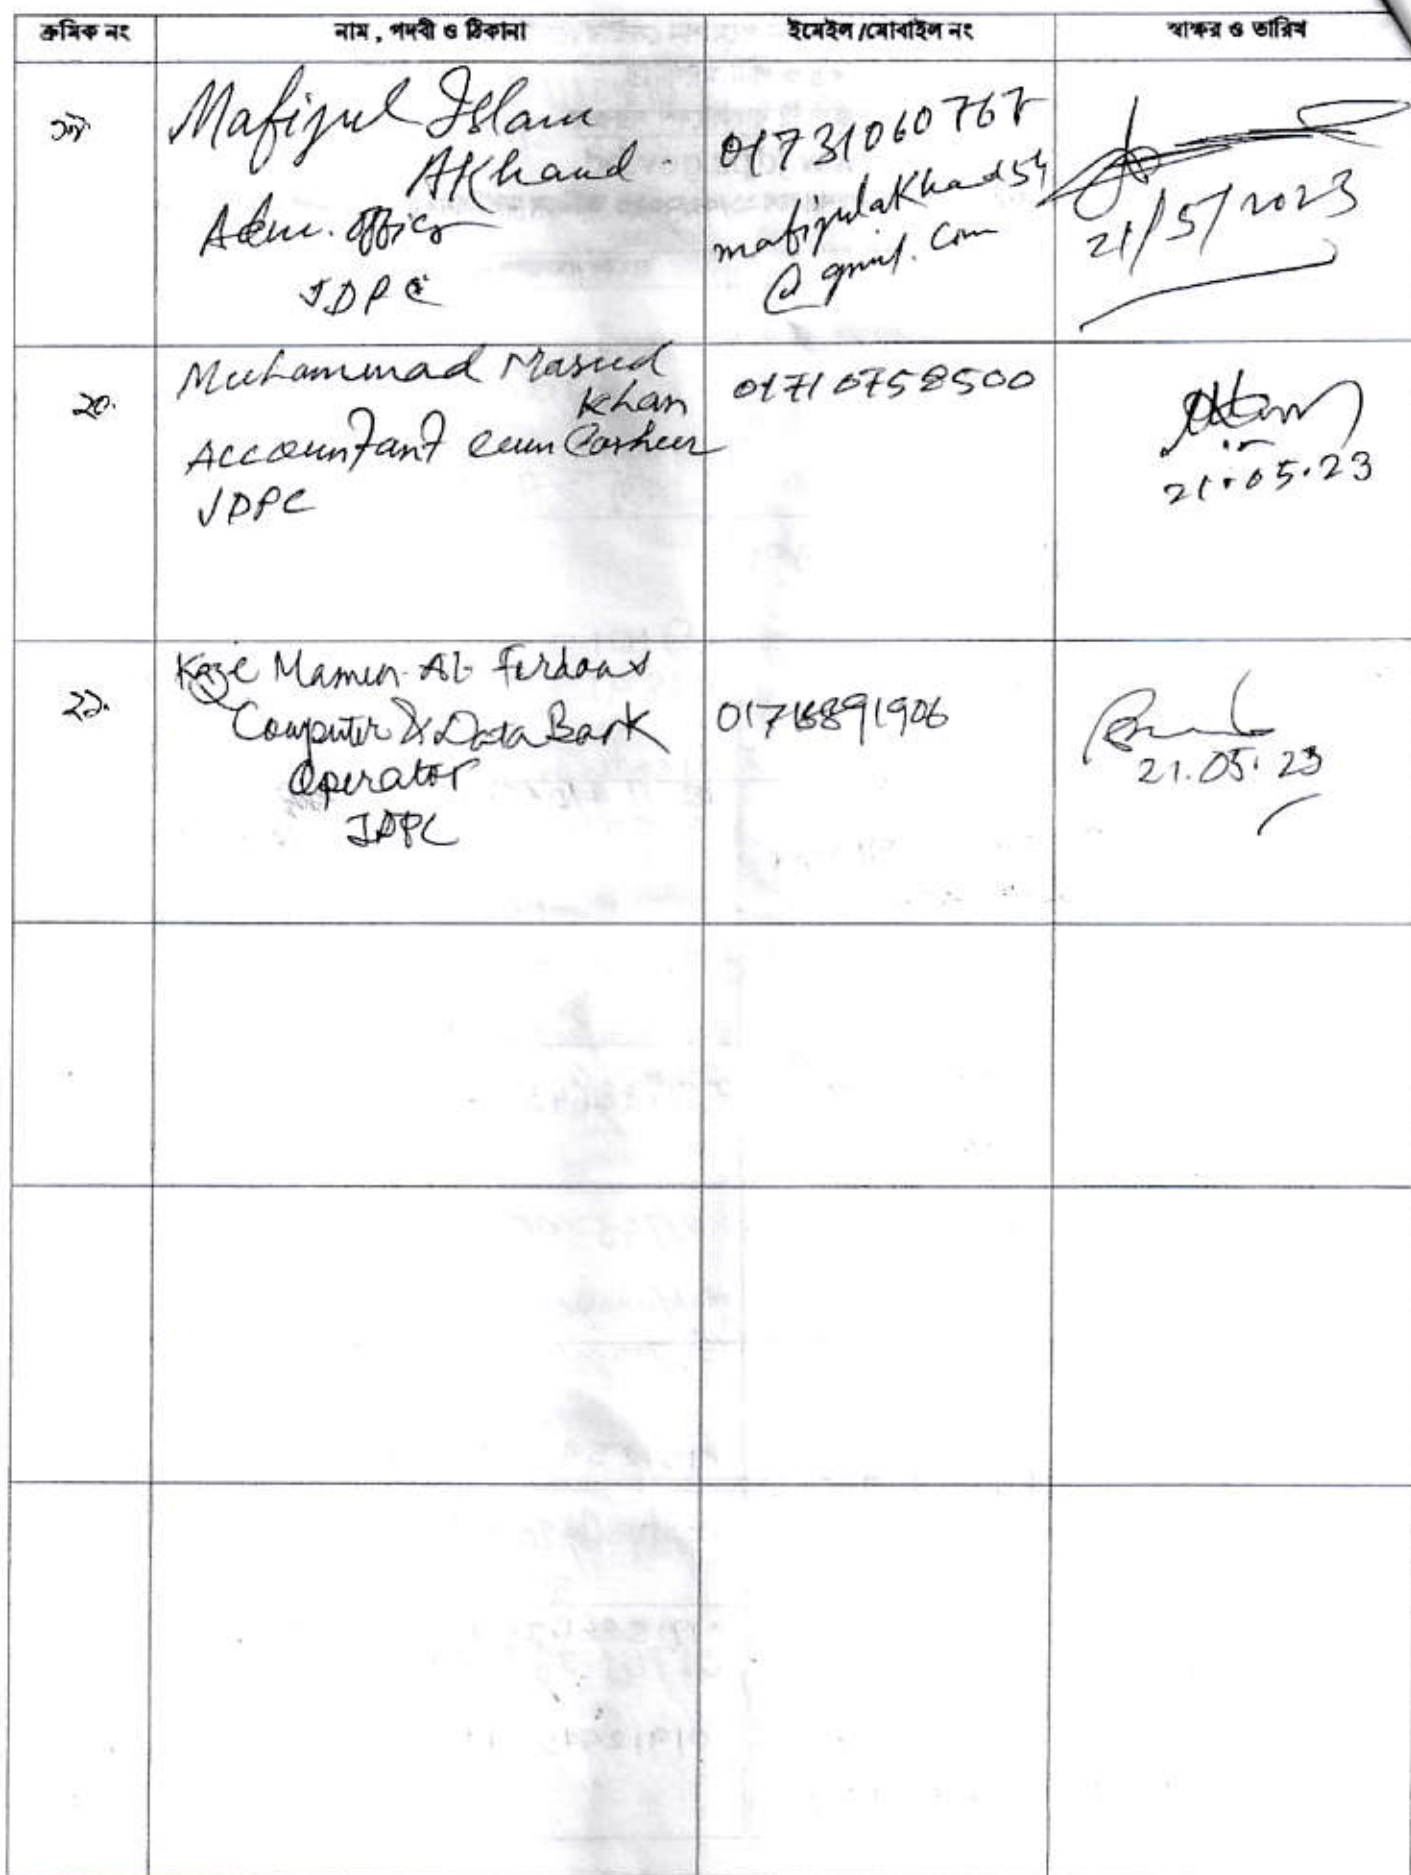 ক্রমিক নং নাম, পদবী ও ঠিকানা ইমেইল /মোবাইল নং স্বাক্ষর ও তারিখ
১৯
Mafizul Islam
AKhand
Adm. Officer
JDPC
01731060767
mafizulakhad54
@gmail.com
21/5/2023
২০.
Muhammad Masud
Khan
Accountant cum Cashier
JDPC
01710758500
21.05.23
২১.
Kazi Mamun-Al-Ferdous
Computer & Data Bank
Operator
JDPC
21.05.23